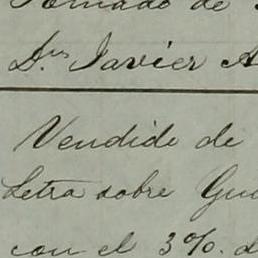 Tomado de
D.ⁿ Javier A
Vendido de
Letra sobre Gua
con el 3%. d